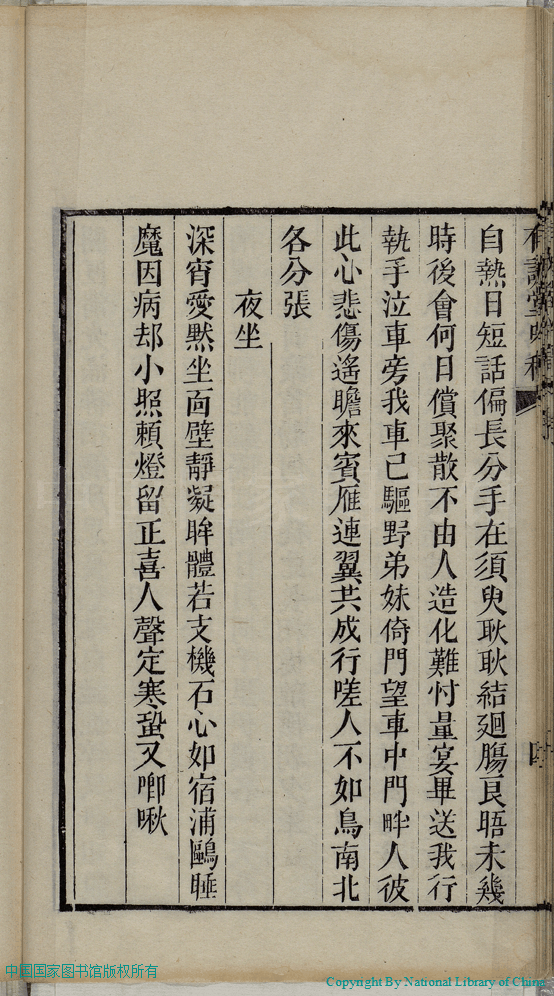 自熱日短話偏長分手在須臾耿耿結廻腸良晤未幾
時後會何日償聚散不由人造化難忖量宴畢送我行
執手泣車旁我車已驅野弟妹倚門望車中門畔人彼
此心悲傷遙瞻來賓雁連翼共成行嗟人不如鳥南北
各分張
夜坐
深宵愛黙坐面壁靜凝眸體若支機石心如宿浦鷗睡
魔因病却小照賴燈留正喜人聲定寒蛩又啣啾
中国国家图书馆版权所有
Copyright By National Library of China